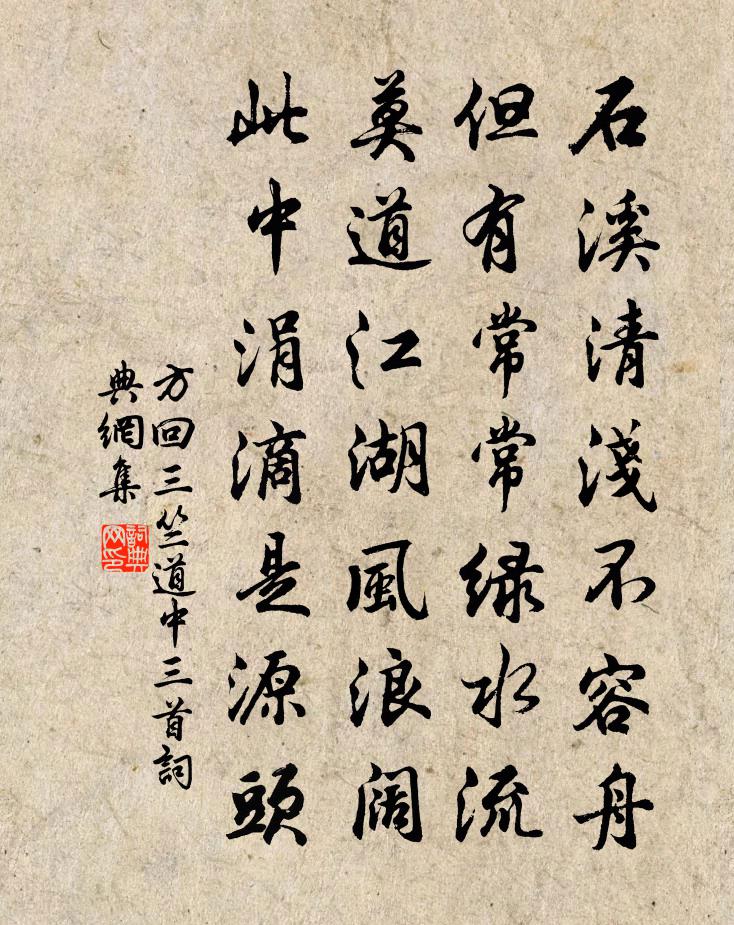 石溪清淺不容舟
但有常常緑水流
莫道江湖風浪闊
此中涓滴是源頭
方回三竺道中三首詞
典網集
詞典
网印